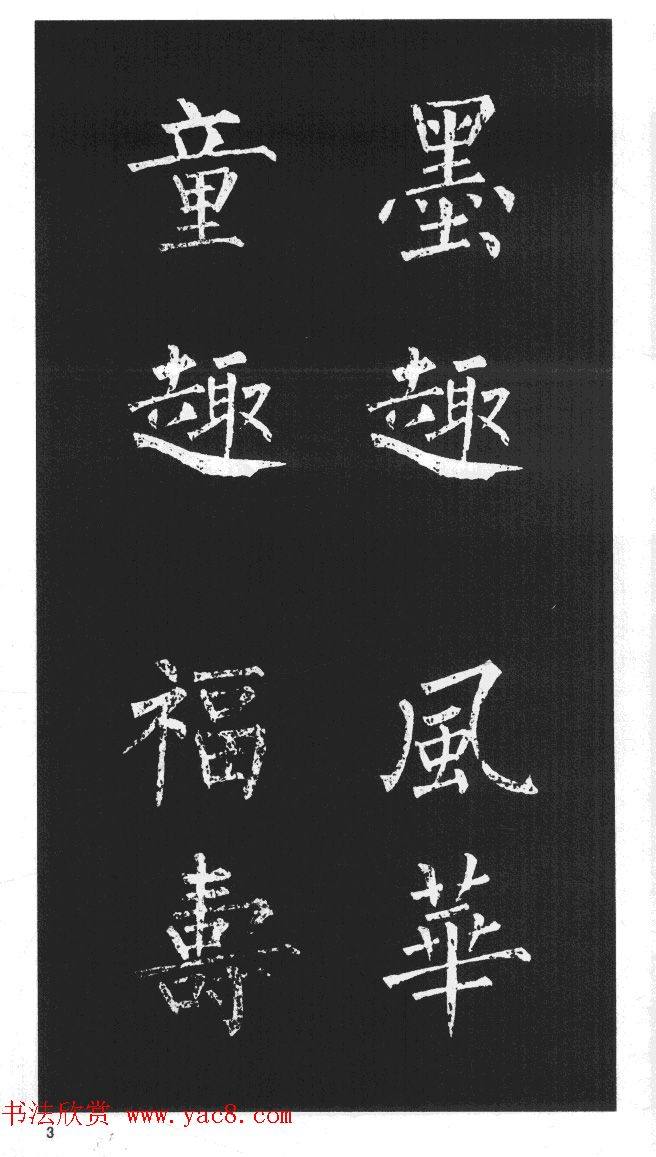 墨趣
風華
童趣
福壽
书法欣赏 www.yac8.com
3